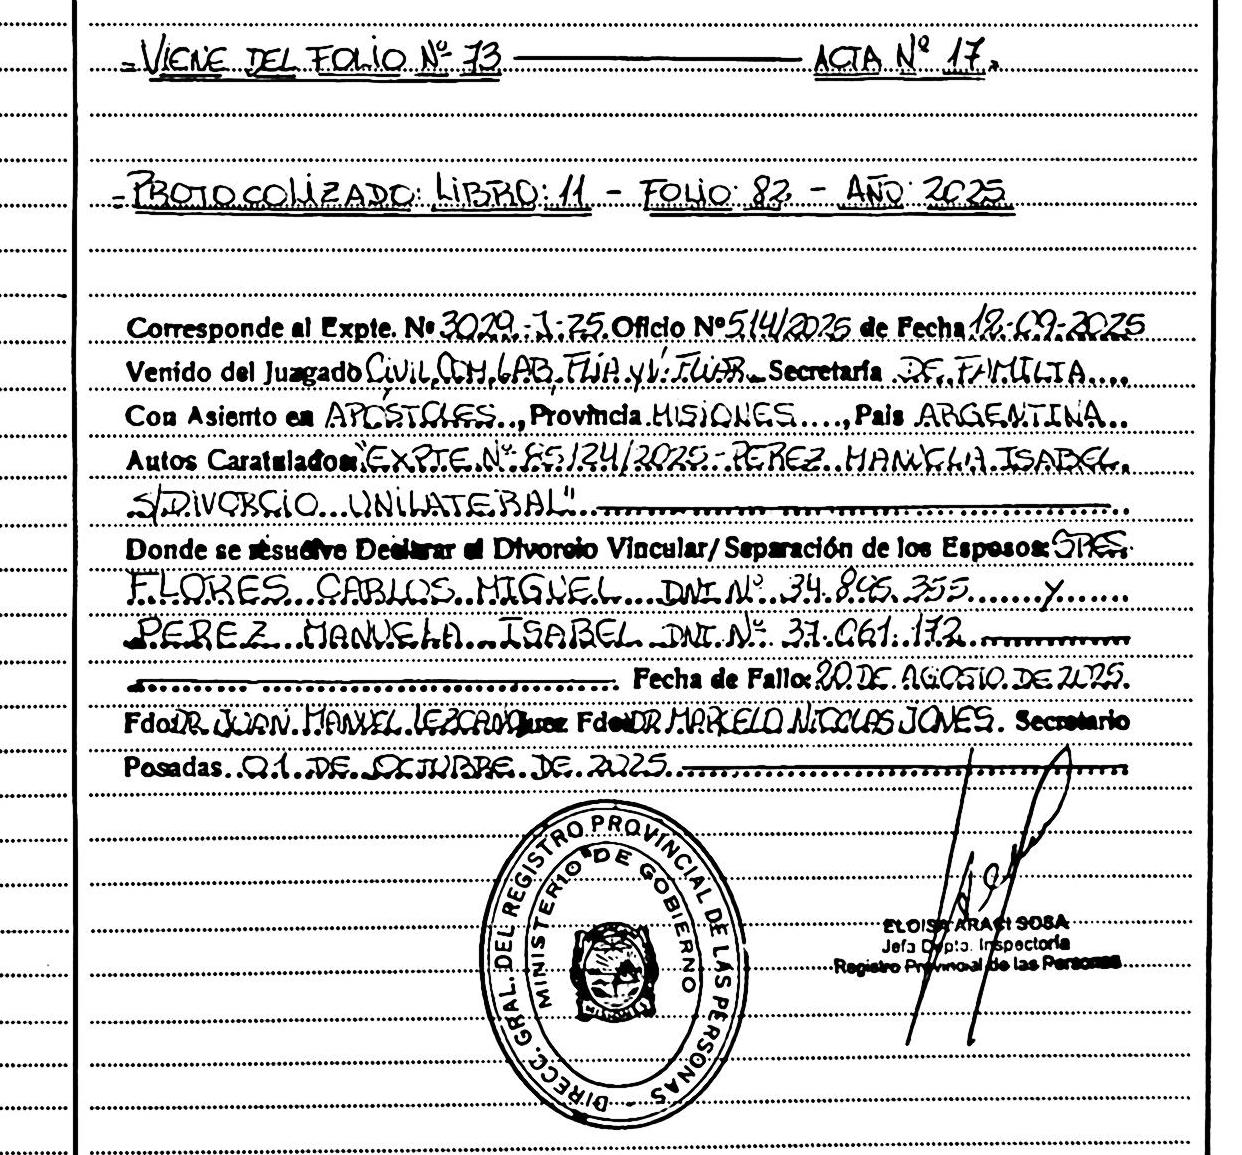 = VIENE DEL FOLIO Nº 73 ——— ACTA Nº 17.
= PROTOCOLIZADO: LIBRO: 11 - FOLIO: 82 - AÑO: 2025
Corresponde al Expte. Nº 3029-J-25. Oficio Nº 514/2025 de Fecha 12-09-2025
Venido del Juzgado CiViL, COM, LAB, FLIA y V. FLIAR. Secretaría DE FAMILIA....
Con Asiento en APÓSTOLES.., Provincia MISIONES...., País ARGENTINA..
Autos Caratulados: "EXPTE. Nº 85124/2025- PEREZ MANUELA ISABEL
S/DIVORCIO UNILATERAL"
Donde se resuelve Declarar el Divorcio Vincular/Separación de los Esposos: SRES.
FLORES CARLOS MIGUEL DNI Nº 34.845.355 y
PEREZ MANUELA ISABEL DNI Nº 37.061.172
Fecha de Fallo: 20 DE AGOSTO DE 2025.
Fdo: DR JUAN MANUEL LEZCANO Juez Fdo: DR MARCELO NICOLAS JONES. Secretario
Posadas 01 DE OCTUBRE DE 2025
DIRECC. GRAL. DEL REGISTRO PROVINCIAL DE LAS PERSONAS -
MINISTERIO DE GOBIERNO
ELOISA ARACI SOSA
Jefa Dpto. Inspectoría
Registro Provincial de las Personas